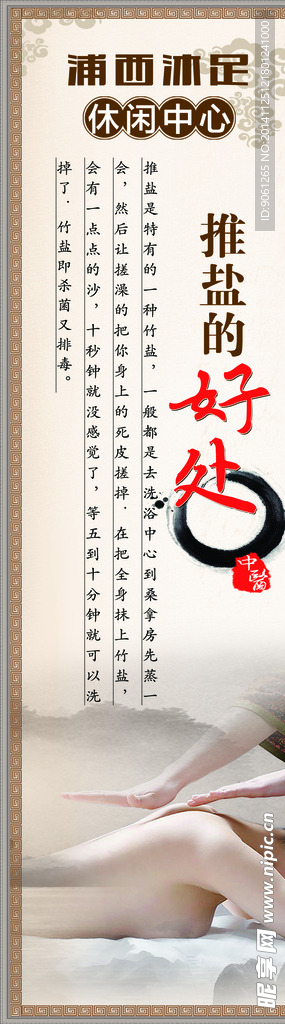 浦西沐足
休闲中心
推盐的
好处
中醫
推盐是特有的一种竹盐，一般都是去洗浴中心到桑拿房先蒸一
会，然后让搓澡的把你身上的死皮搓掉．在把全身抹上竹盐，
会有一点点的沙，十秒钟就没感觉了，等五到十分钟就可以洗
掉了．竹盐即杀菌又排毒。
ID:9061265 NO:20141125121801241000
昵享网 www.nipic.cn